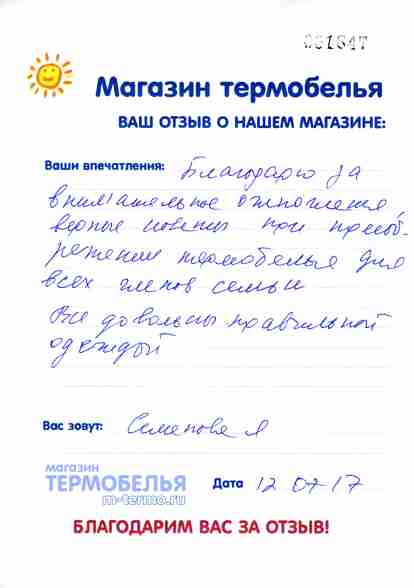 051847
Магазин термобелья
ВАШ ОТЗЫВ О НАШЕМ МАГАЗИНЕ:
Ваши впечатления: Благодарю за
внимательное отношение
верные советы при приоб-
ретении термобелья для
всех членов семьи
Все довольны правильной
одеждой
Вас зовут: Семенова Я
магазин
ТЕРМОБЕЛЬЯ
m-termo.ru
Дата 12 07 17
БЛАГОДАРИМ ВАС ЗА ОТЗЫВ!